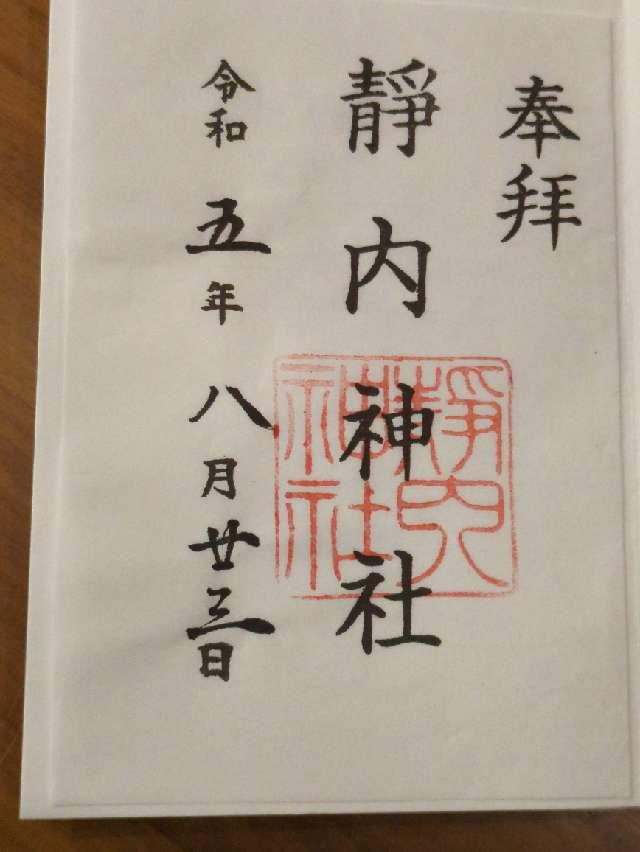 奉拝
靜内神社
令和五年八月廿三日
靜内神社